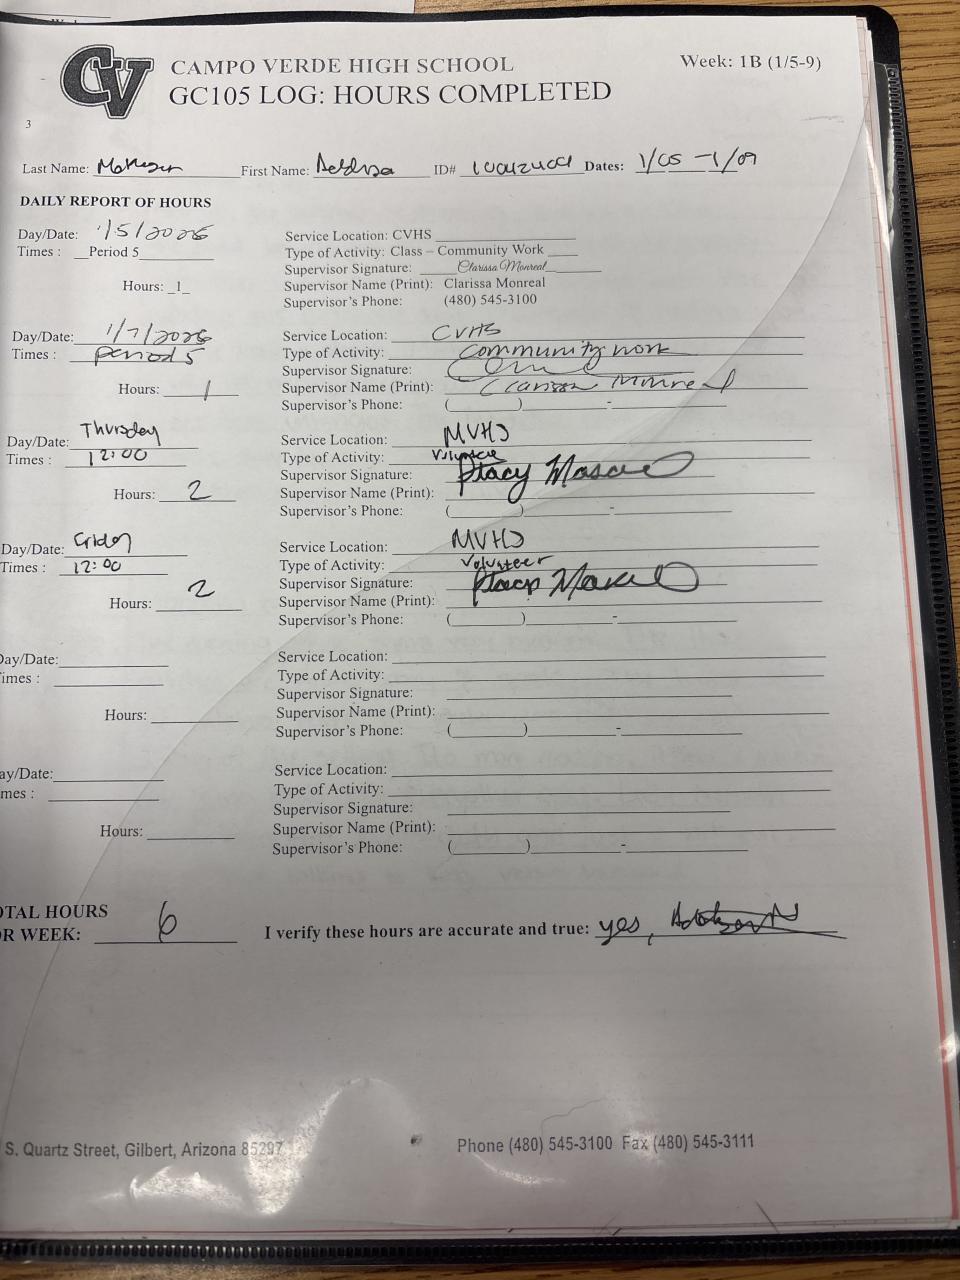 CV
CAMPO VERDE HIGH SCHOOL
Week: 1B (1/5-9)
GC105 LOG: HOURS COMPLETED
3
Last Name: First Name: ID# Dates: 1/05 - 1/09
DAILY REPORT OF HOURS
Day/Date: 1/5/2026
Times : Period 5
Hours: 1
Service Location: CVHS
Type of Activity: Class – Community Work
Supervisor Signature: Clarissa Monreal
Supervisor Name (Print): Clarissa Monreal
Supervisor's Phone: (480) 545-3100
Day/Date: 1/7/2026
Times : period 5
Hours: 1
Service Location: CVHS
Type of Activity: Community work
Supervisor Signature:
Supervisor Name (Print): Clarissa Monreal
Supervisor's Phone: ( ) -
Day/Date: Thursday
Times : 12:00
Hours: 2
Service Location: MVHS
Type of Activity: Volunteer
Supervisor Signature: Stacy
Supervisor Name (Print):
Supervisor's Phone: ( ) -
Day/Date: Friday
Times : 12:00
Hours: 2
Service Location: MVHS
Type of Activity: Volunteer
Supervisor Signature: Stacy
Supervisor Name (Print):
Supervisor's Phone: ( ) -
Day/Date:
imes :
Hours:
Service Location:
Type of Activity:
Supervisor Signature:
Supervisor Name (Print):
Supervisor's Phone: ( ) -
ay/Date:
mes :
Hours:
Service Location:
Type of Activity:
Supervisor Signature:
Supervisor Name (Print):
Supervisor's Phone: ( ) -
OTAL HOURS
R WEEK: 6
I verify these hours are accurate and true: yes,
S. Quartz Street, Gilbert, Arizona 85297
Phone (480) 545-3100 Fax (480) 545-3111